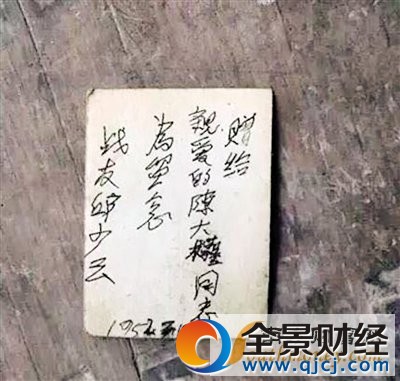 赠给
親爱的陳大權同志
為留念
战友邱少云
1952.
全景财经
www.qjcj.com